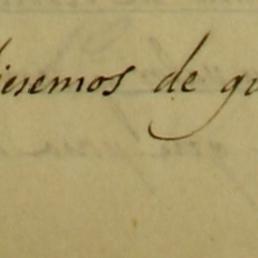 iesemos de gu